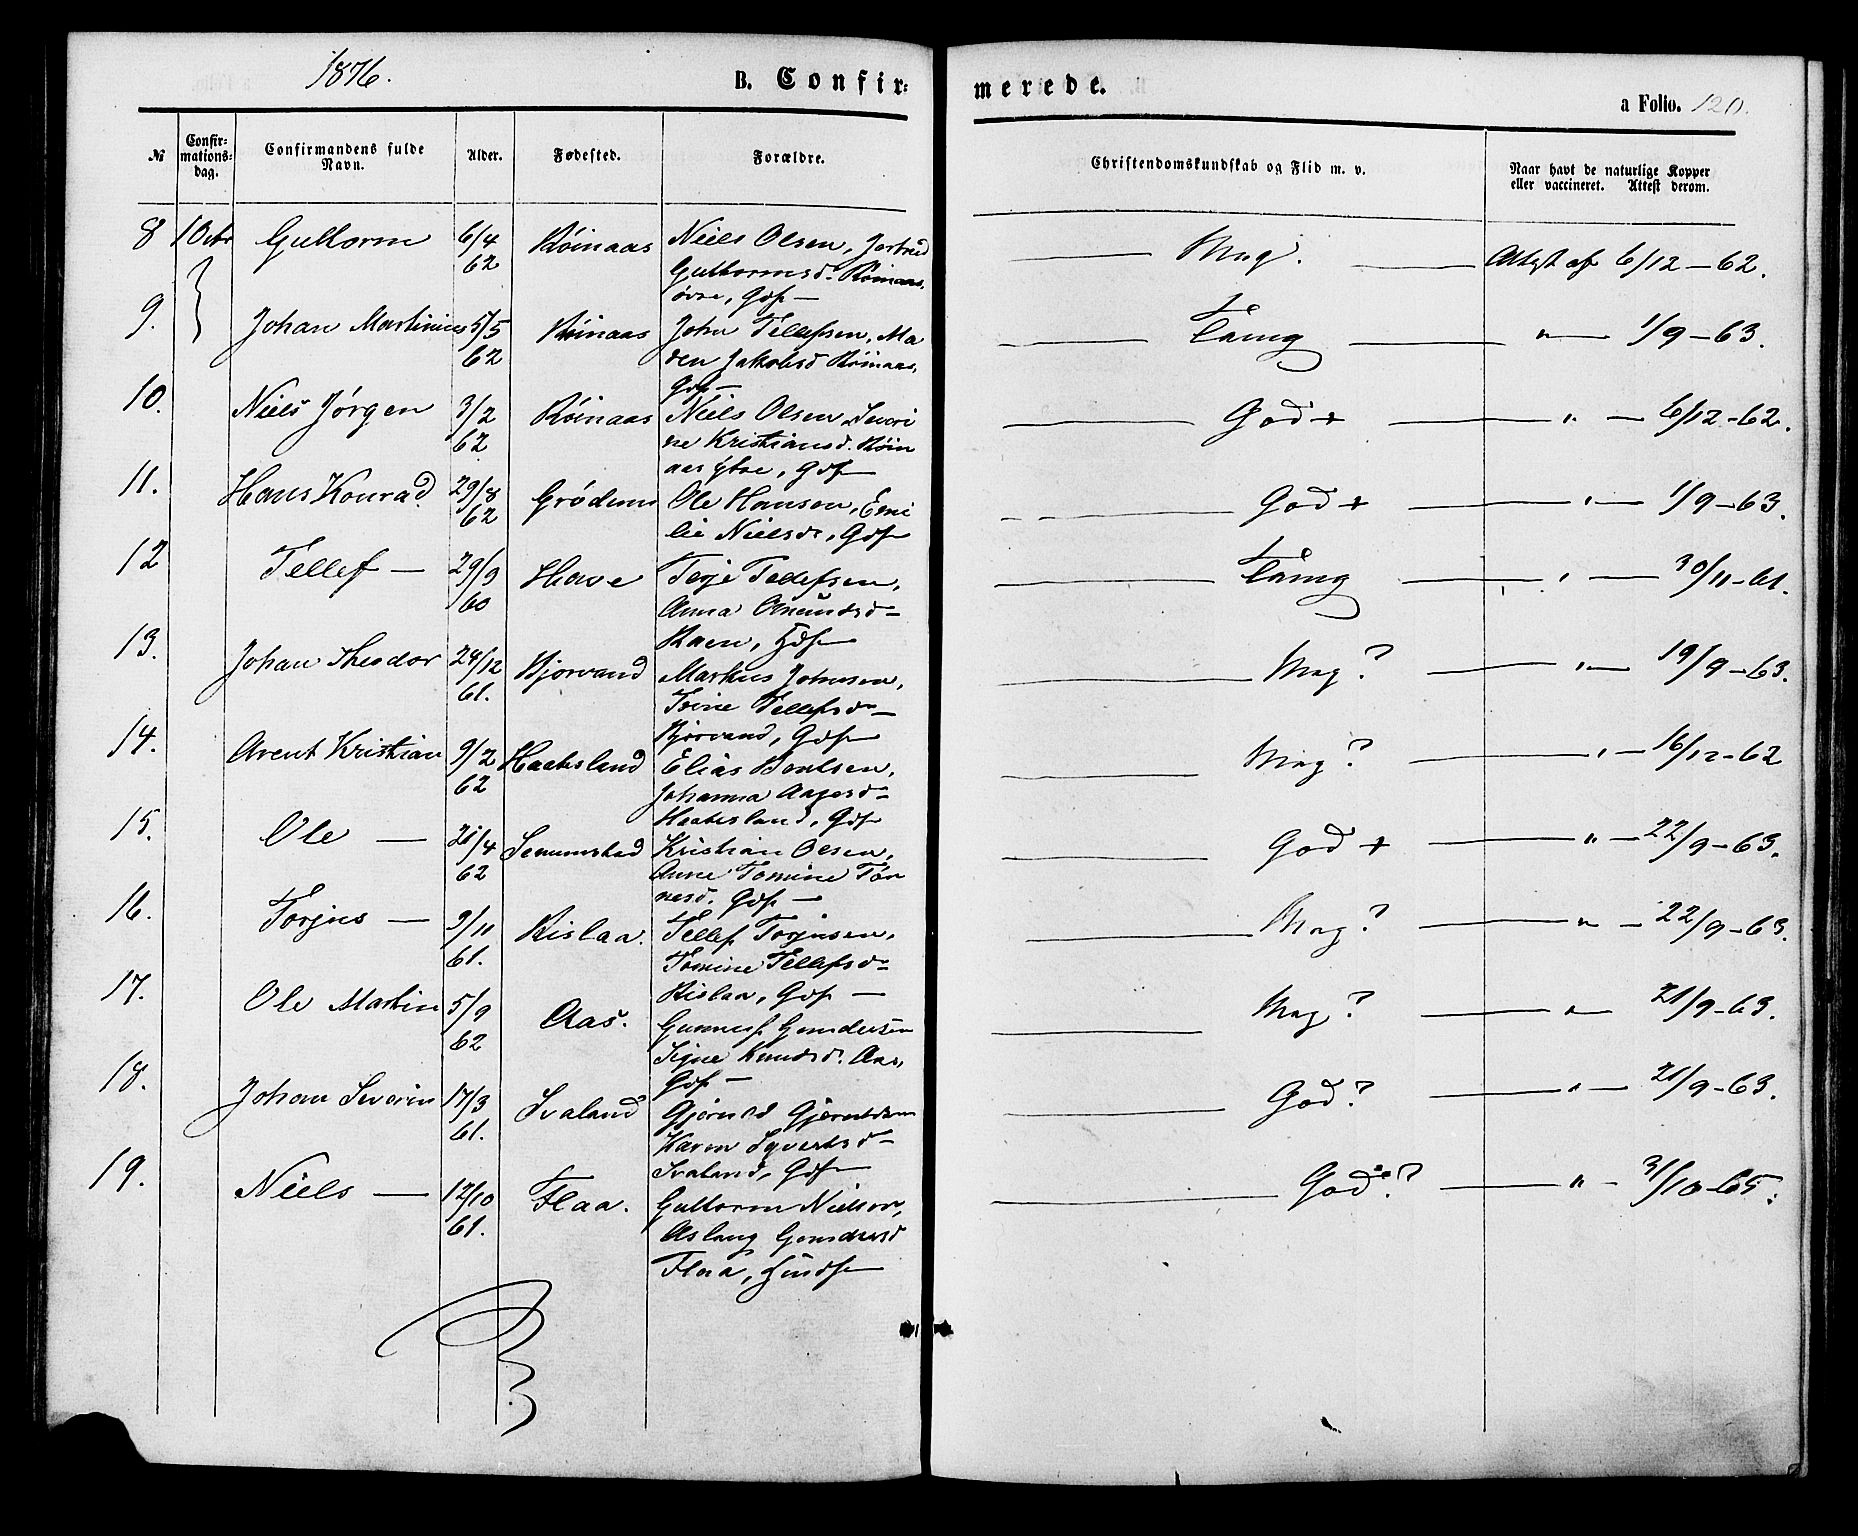 1876.
B. Confir-
merede.
a Folio. 120.
№
Confir-
mations-
dag.
Confirmandens fulde
Navn.
Alder.
Fødested.
Forældre.
Christendomskundskab og Flid m. v.
Naar havt de naturlige Kopper
eller vaccineret. Attest derom.
8 1 Octbr Guttorm 6/4 62 Röinaas Niels Olsen,
Guttormsd. Röinaas,
övre, Gdf —
Mag. — Attest af 6/12 — 62.
9. Johan Martinius 5/5 62 Röinaas John Tellefsen, Ma
ren Jakobsd Röinaas,
Gdf —
Tåmg — " — 1/9 — 63.
10. Niels Jörgen 3/2 62 Röinaas Niels Olsen, Severi
ne Kristiansd. Röin
aas ytre, Gdf —
God + — " — 6/12 - 62.
11. Hans Konrad 29/8 62 Grödum Ole Hansen, Emi
lie Nielsd, Gdf —
God + — " — 1/9 — 63.
12 Tellef — 29/9 60 Have Terje Tellefsen,
Anna Omundsd —
Raen, Hdf —
Tåmg — " — 30/11 - 61.
13. Johan Theodor 24/12 61. Bjorvand Markus Johnsen,
Trine Tellefsd —
Bjorvand, Gdf —
Mag? — " — 19/9 — 63.
14. Arent Kristian 9/2 62 Haabesland Elias Bentsen,
Johanna Aagesd —
Haabesland, Gdf
Mag? — " — 16/12 - 62
15. Ole — 21/4 62 Semmestad Kristian Olsen,
Anne Tomine Tör
resd. Gdf —
God + — " — 22/9 — 63.
16. Torjus — 9/11 61. Rislaa. Tellef Torjusen,
Tomine Tellefsd —
Rislaa, Gdf —
Mag? — " — 22/9 — 63.
17. Ole Martin 5/9 62 Aas. Gunnuf Gundersen
Signe Knudsd. Aas,
Gdf —
Mag? — " — 21/9 — 63.
18. Johan Severin 17/3 61. Svaland Gjerulf
Karen Syvertsd —
Svaland, Gdf —
God? — " — 21/9 — 63.
19. Niels — 12/10 61. Flaa. Guttorm Nielsen,
Aslaug Gundersd
Flaa, Hdf —
God? — " — 3/10 - 65.